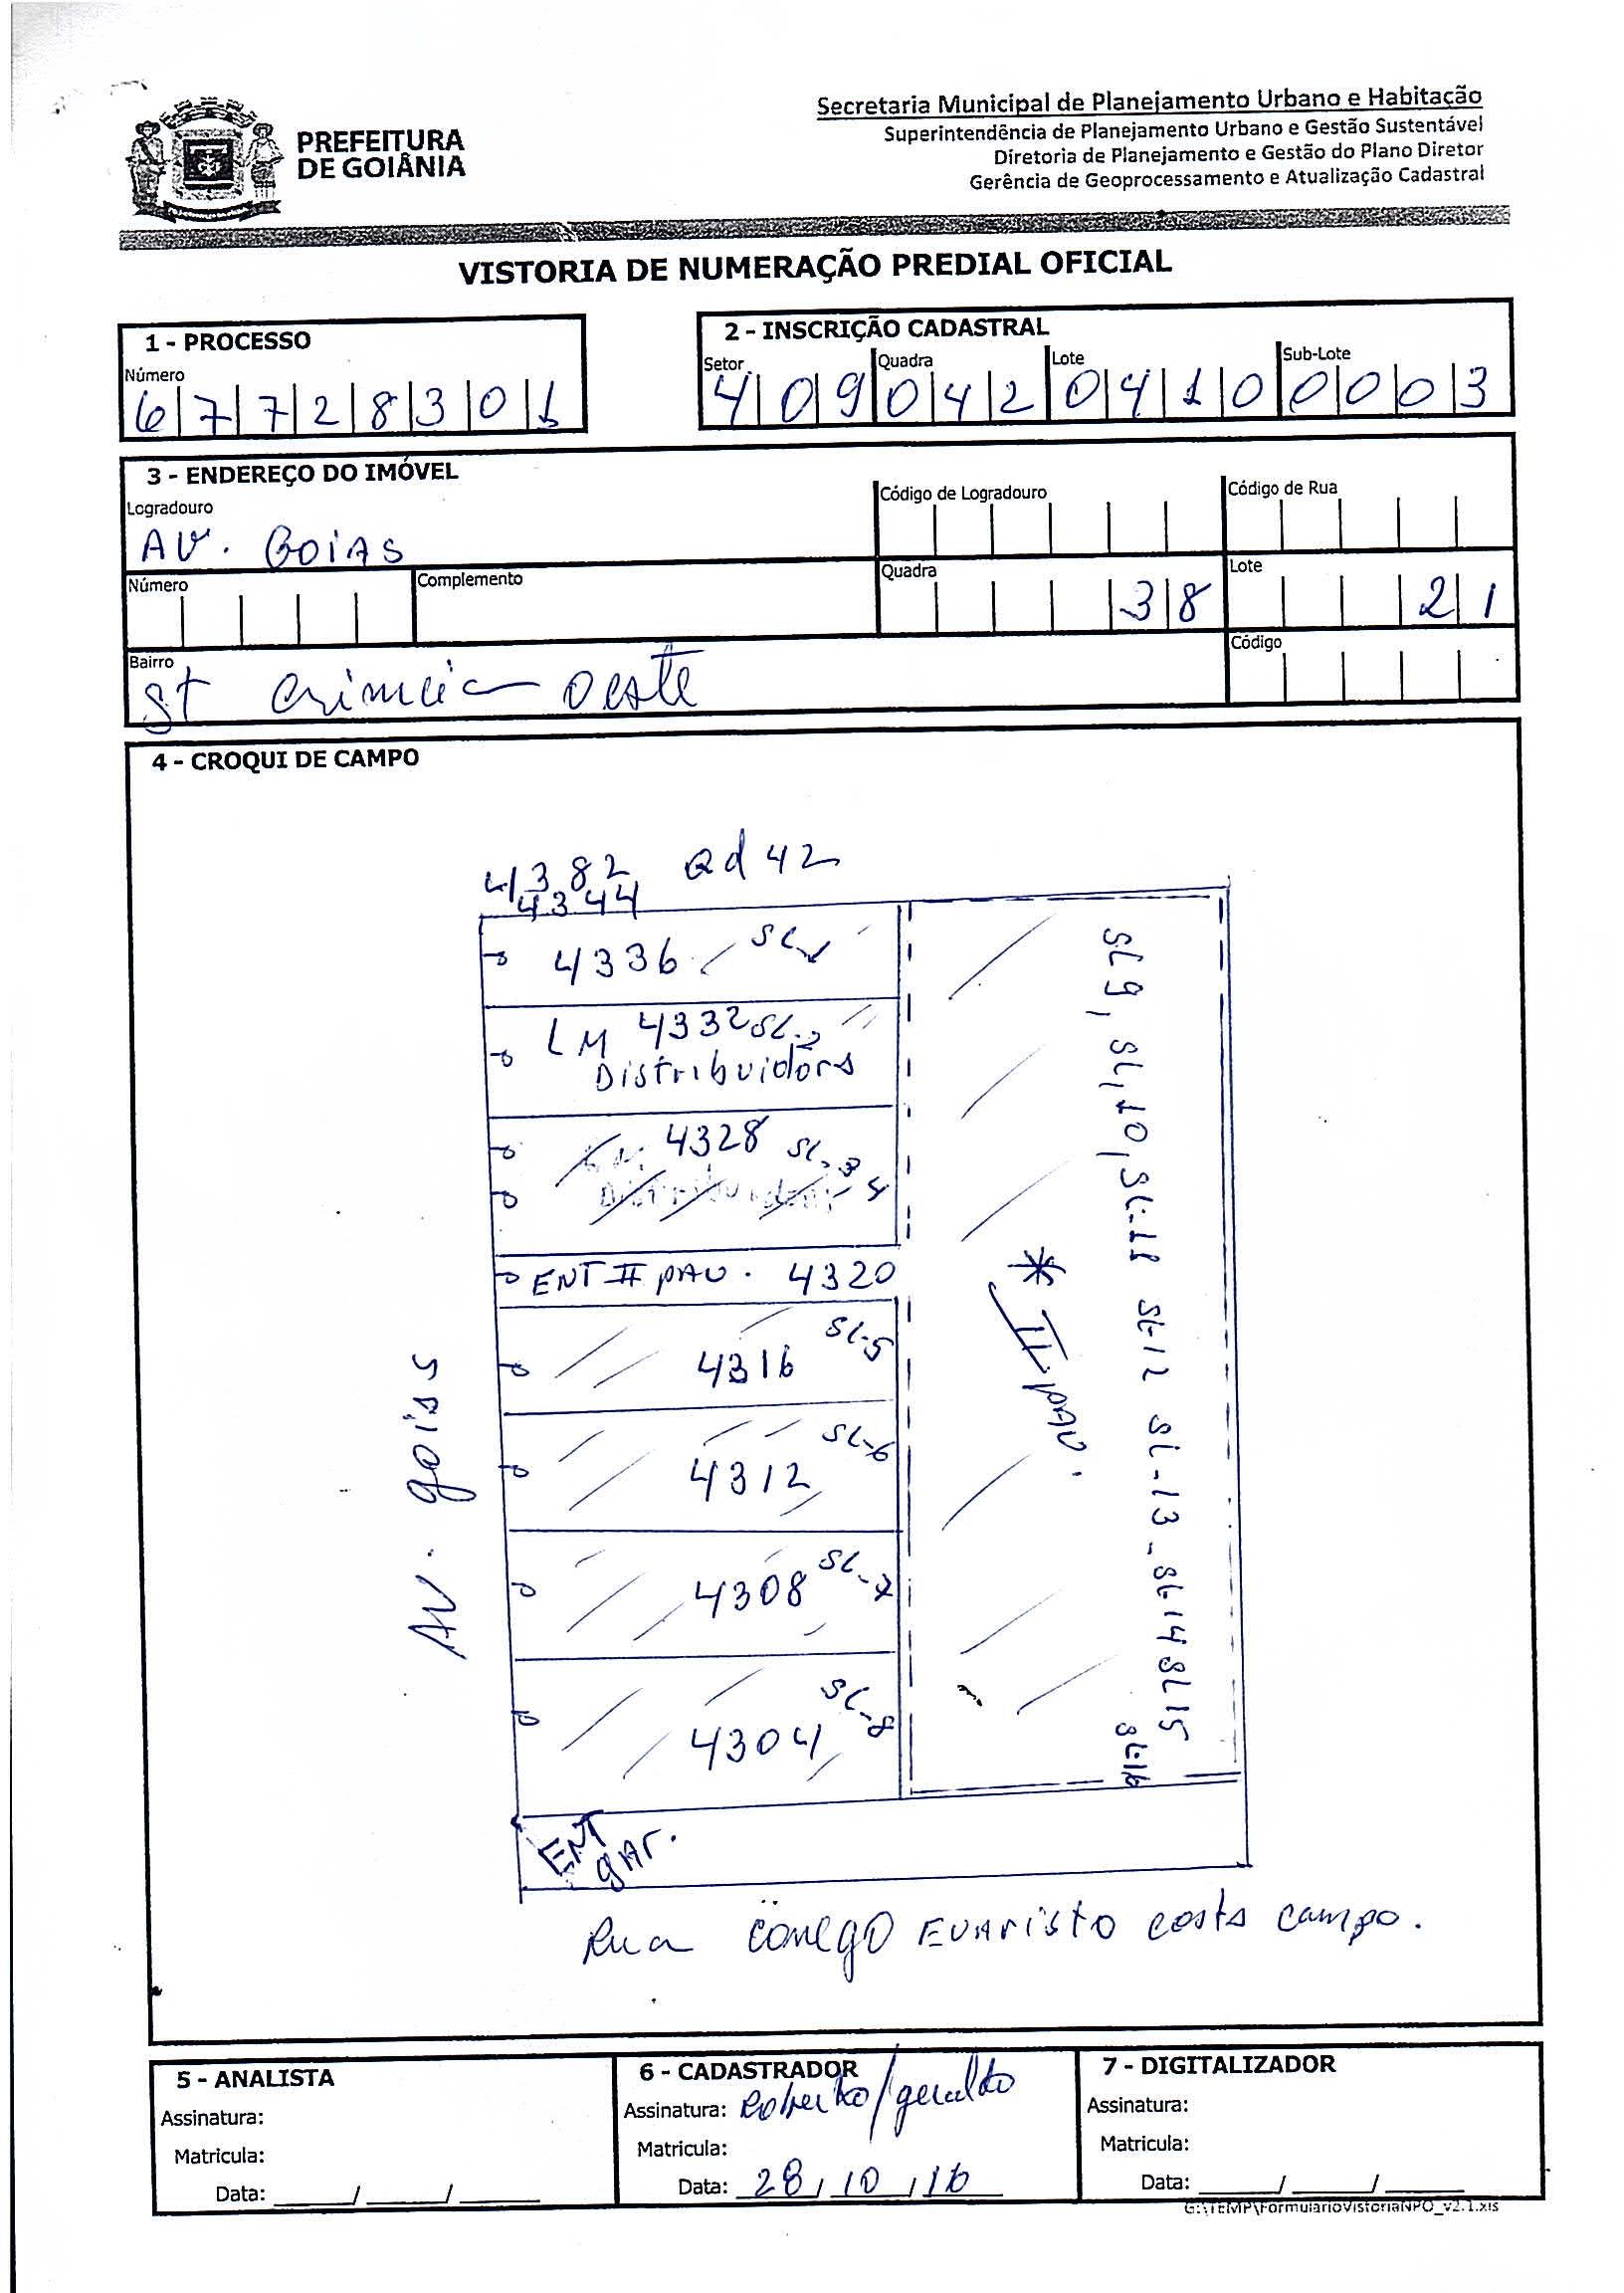 PREFEITURA
DE GOIÂNIA
Secretaria Municipal de Planejamento Urbano e Habitação
Superintendência de Planejamento Urbano e Gestão Sustentável
Diretoria de Planejamento e Gestão do Plano Diretor
Gerência de Geoprocessamento e Atualização Cadastral
VISTORIA DE NUMERAÇÃO PREDIAL OFICIAL
1 - PROCESSO
Número
6 7 7 2 8 3 0 1
2 - INSCRIÇÃO CADASTRAL
Setor Quadra Lote Sub-Lote
4 0 9 0 4 2 0 4 1 0 0 0 0 3
3 - ENDEREÇO DO IMÓVEL
Logradouro Código de Logradouro Código de Rua
AV. GOIAS
Número Complemento Quadra Lote
38 21
Bairro Código
St Criméia Oeste
4 - CROQUI DE CAMPO
4382 Qd 42
4344
4336 SL-1
LM 4332 SL-2
Distribuidora
4328 SL-3
Distribuidora 4
ENT II PAV. 4320
SL-5
4316
SL-6
4312
SL-7
4308
SL-8
4304
ENT
gAr.
AV. goiás
* II PAV.
SL 9, SL, 10, SL-11 SL-12 SL-13 - SL-14 SL 15
SL-16
Rua Cônego Evaristo costa campo.
5 - ANALISTA
Assinatura:
Matricula:
Data: ____/____/____
6 - CADASTRADOR
Assinatura: Roberto/geraldo
Matricula:
Data: 28/10/16
7 - DIGITALIZADOR
Assinatura:
Matricula:
Data: ____/____/____
G:\TEMP\FormularioVistoriaNPO_v2.1.xls